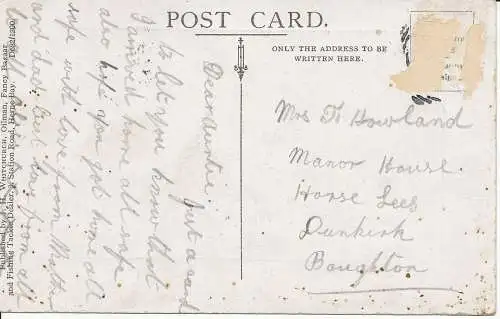 POST CARD.
ONLY THE ADDRESS TO BE
WRITTEN HERE.
Dear Auntie. Just a card
to let you know that
I arrived home all safe
also hope you got home all
safe with love from Mother
and dad best love from all
Mrs Howland
Manor House
Horse Lees
Dunkirk
Boughton
Published by H. Whitchurch, Oilman, Fancy Bazaar
and Fishing Tackle Dealer, Station Road, Herne Bay